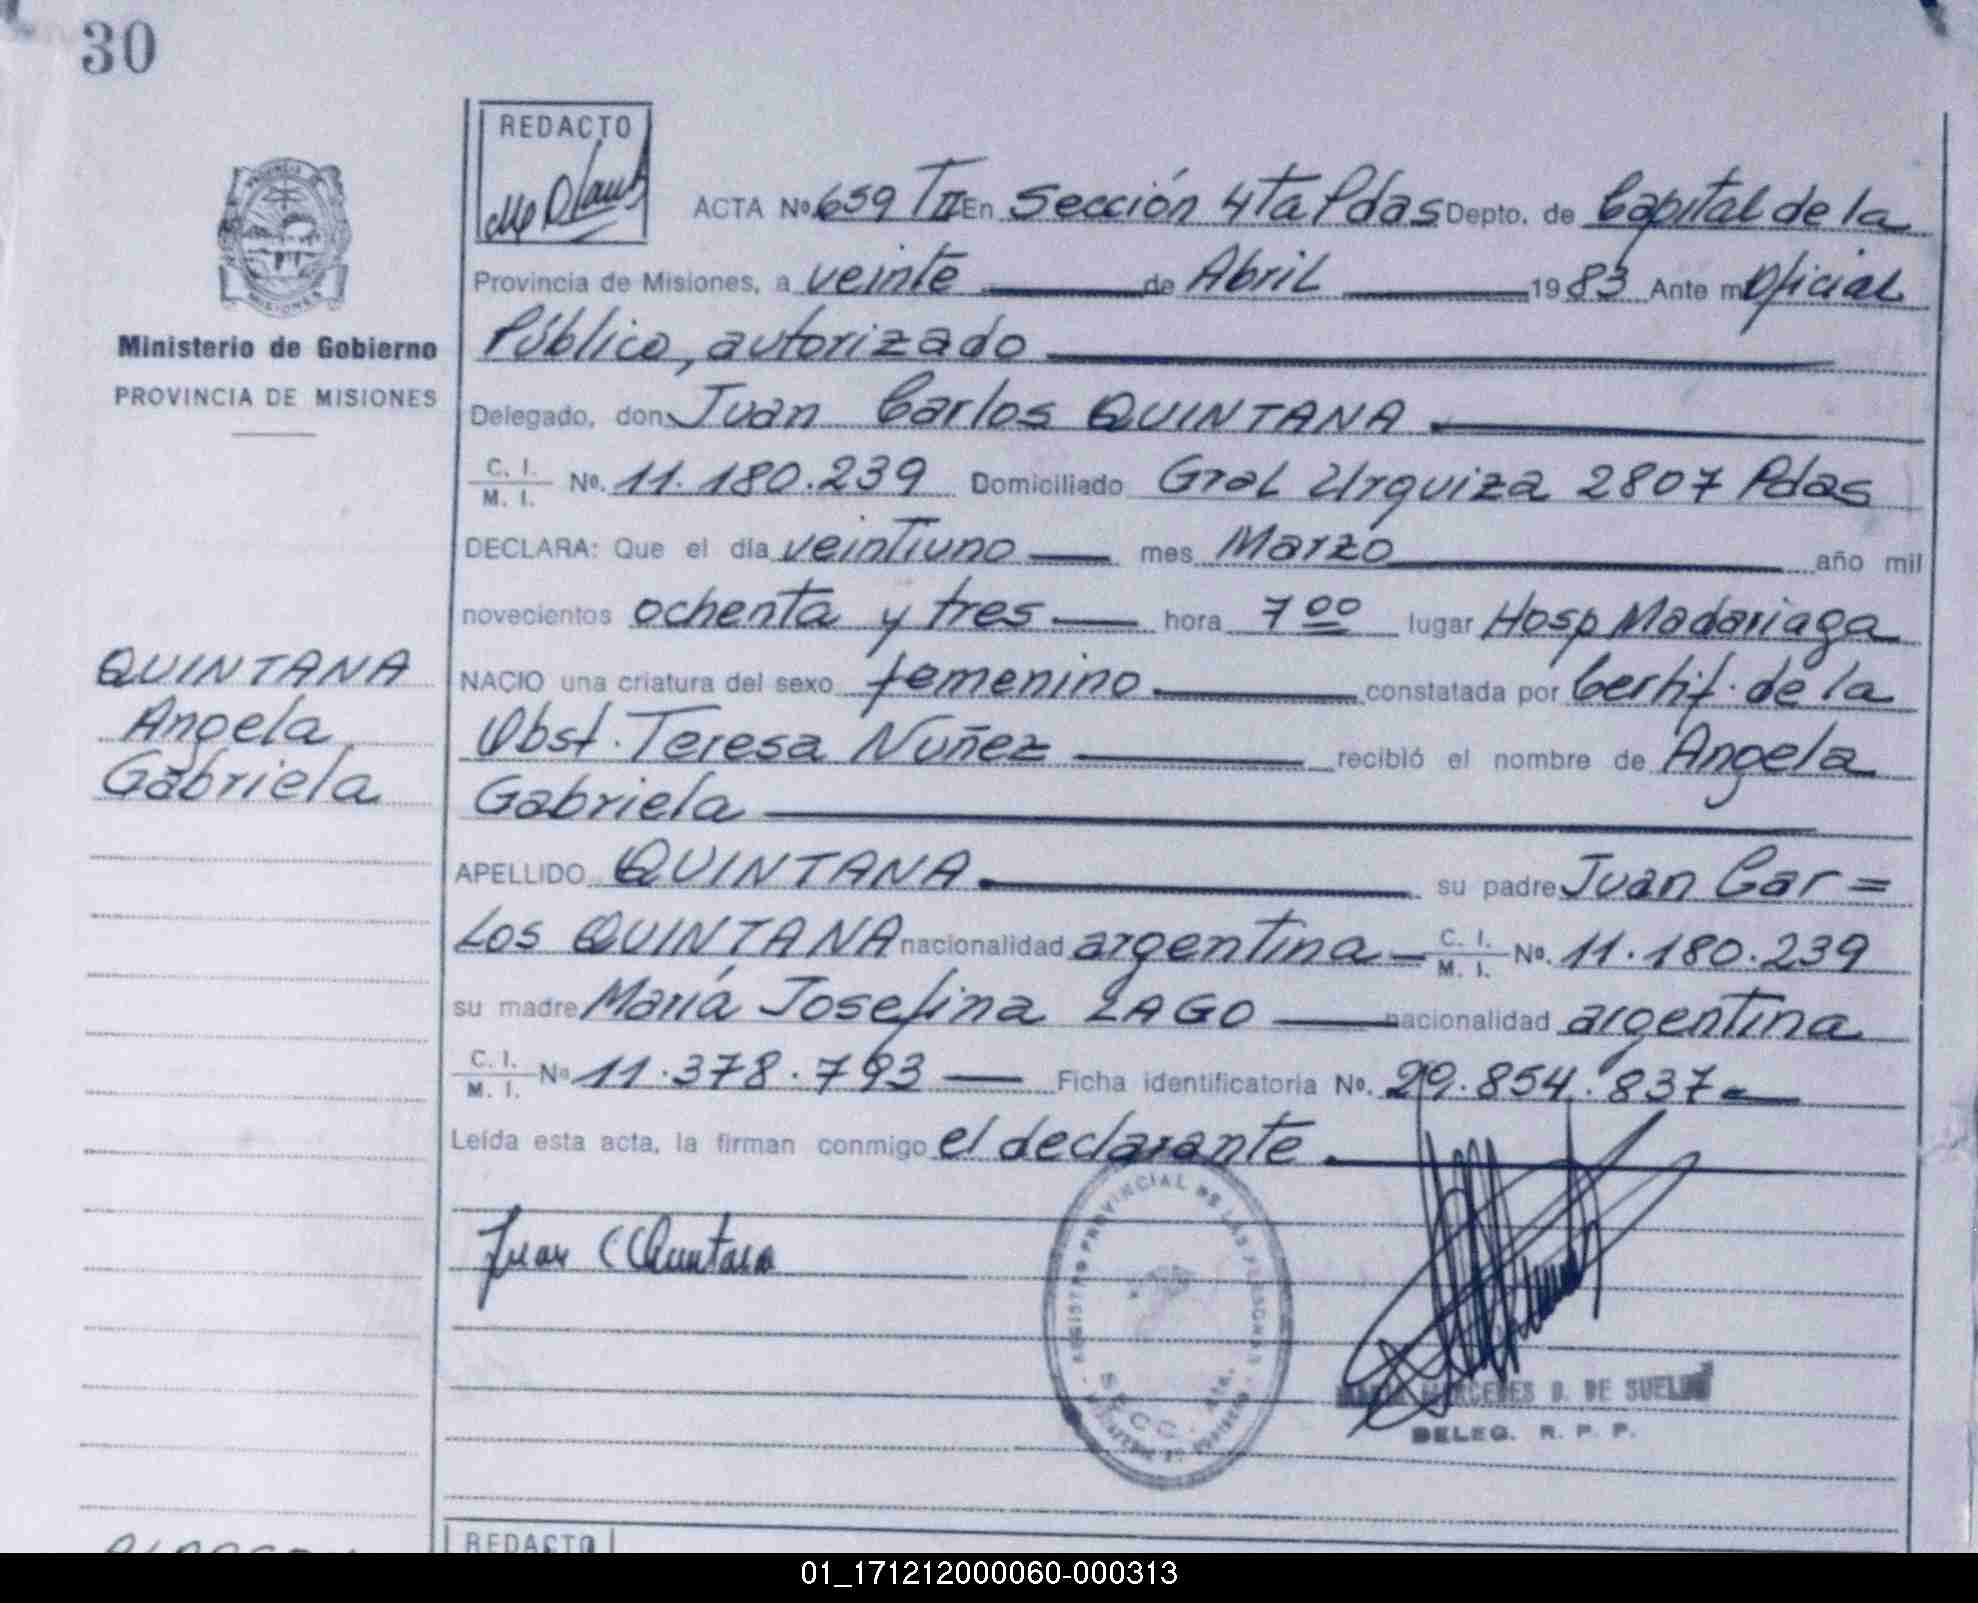 30
REDACTO
ACTA Nº 659 TII En Sección 4ta Pdas Depto. de Capital de la
Provincia de Misiones, a veinte de Abril 1983 Ante mí Oficial
Público, autorizado
Delegado, don Juan Carlos QUINTANA
C. I.
M. I. Nº. 11.180.239 Domiciliado Gral Urquiza 2807 Pdas
DECLARA: Que el día veintiuno mes Marzo año mil
novecientos ochenta y tres hora 7 00 lugar Hosp Madariaga
NACIO una criatura del sexo femenino constatada por Certif. de la
Obst. Teresa Nuñez recibió el nombre de Angela
Gabriela
APELLIDO QUINTANA su padre Juan Car=
los QUINTANA nacionalidad argentina C. I. M. I. Nº. 11.180.239
su madre María Josefina LAGO nacionalidad argentina
C. I.
M. I. Nº 11.378.793 Ficha identificatoria Nº. 29.854.837
Leída esta acta, la firman conmigo el declarante
Juan C Quintana
Ministerio de Gobierno
PROVINCIA DE MISIONES
QUINTANA
Angela
Gabriela
MISIONES
REGISTRO PROVINCIAL DE LAS PERSONAS
SECC. 4ta.
MERCEDES D. DE SUELDO
DELEG. R. P. P.
REDACTO
01_171212000060-000313